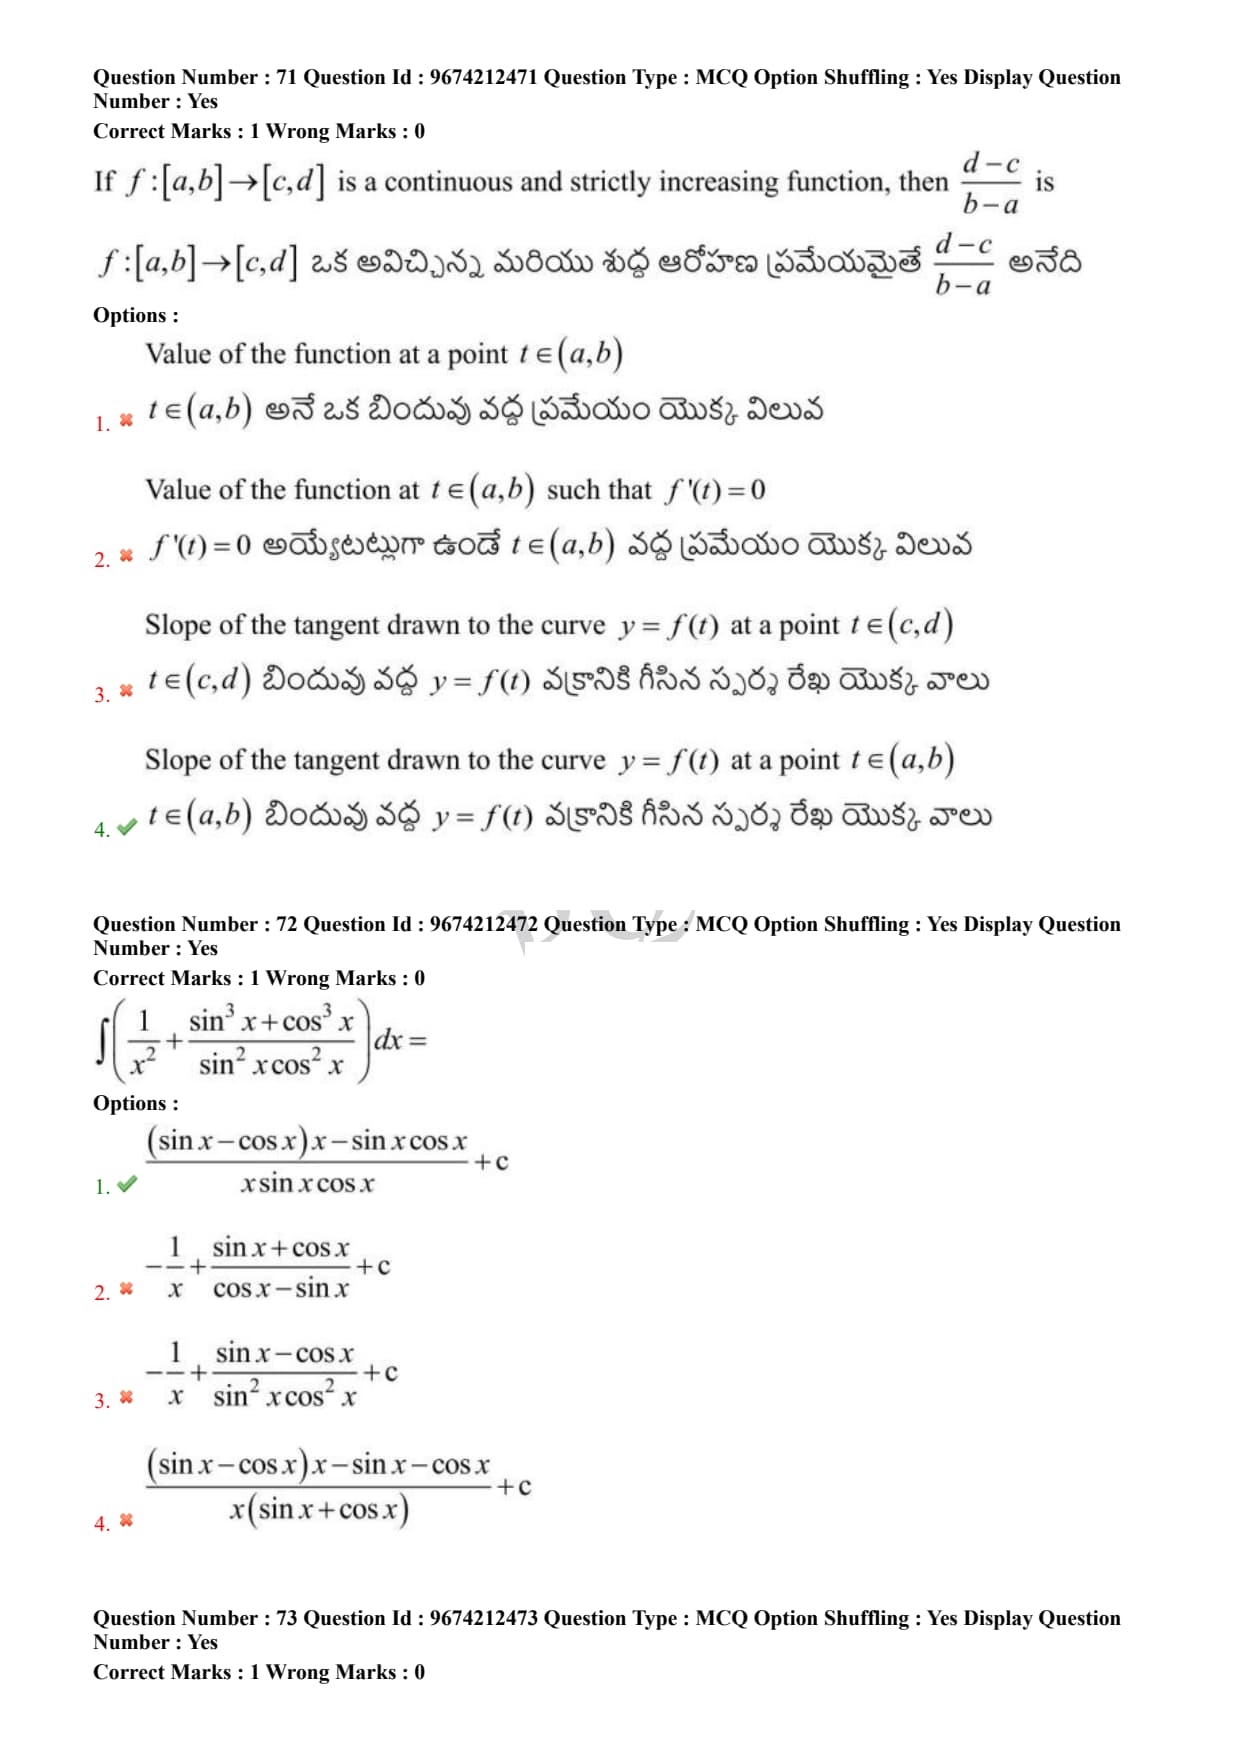 Question Number : 71 Question Id : 9674212471 Question Type : MCQ Option Shuffling : Yes Display Question
Number : Yes
Correct Marks : 1 Wrong Marks : 0
If f :[a,b]→[c,d] is a continuous and strictly increasing function, then (d−c)/(b−a) is
f :[a,b]→[c,d] ఒక అవిచ్ఛిన్న మరియు శుద్ధ ఆరోహణ ప్రమేయమైతే (d−c)/(b−a) అనేది
Options :
Value of the function at a point t∈(a,b)
1. ✖ t∈(a,b) అనే ఒక బిందువు వద్ద ప్రమేయం యొక్క విలువ
Value of the function at t∈(a,b) such that f '(t)=0
2. ✖ f '(t)=0 అయ్యేటట్లుగా ఉండే t∈(a,b) వద్ద ప్రమేయం యొక్క విలువ
Slope of the tangent drawn to the curve y = f(t) at a point t∈(c,d)
3. ✖ t∈(c,d) బిందువు వద్ద y = f(t) వక్రానికి గీసిన స్పర్శ రేఖ యొక్క వాలు
Slope of the tangent drawn to the curve y = f(t) at a point t∈(a,b)
4. ✔ t∈(a,b) బిందువు వద్ద y = f(t) వక్రానికి గీసిన స్పర్శ రేఖ యొక్క వాలు
Question Number : 72 Question Id : 9674212472 Question Type : MCQ Option Shuffling : Yes Display Question
Number : Yes
Correct Marks : 1 Wrong Marks : 0
∫(1/x² + (sin³ x+cos³ x)/(sin² x cos² x))dx =
Options :
1. ✔ ((sin x−cos x)x−sin x cos x)/(x sin x cos x) +c
2. ✖ −1/x + (sin x+cos x)/(cos x−sin x) +c
3. ✖ −1/x + (sin x−cos x)/(sin² x cos² x) +c
4. ✖ ((sin x−cos x)x−sin x−cos x)/(x(sin x+cos x)) +c
Question Number : 73 Question Id : 9674212473 Question Type : MCQ Option Shuffling : Yes Display Question
Number : Yes
Correct Marks : 1 Wrong Marks : 0